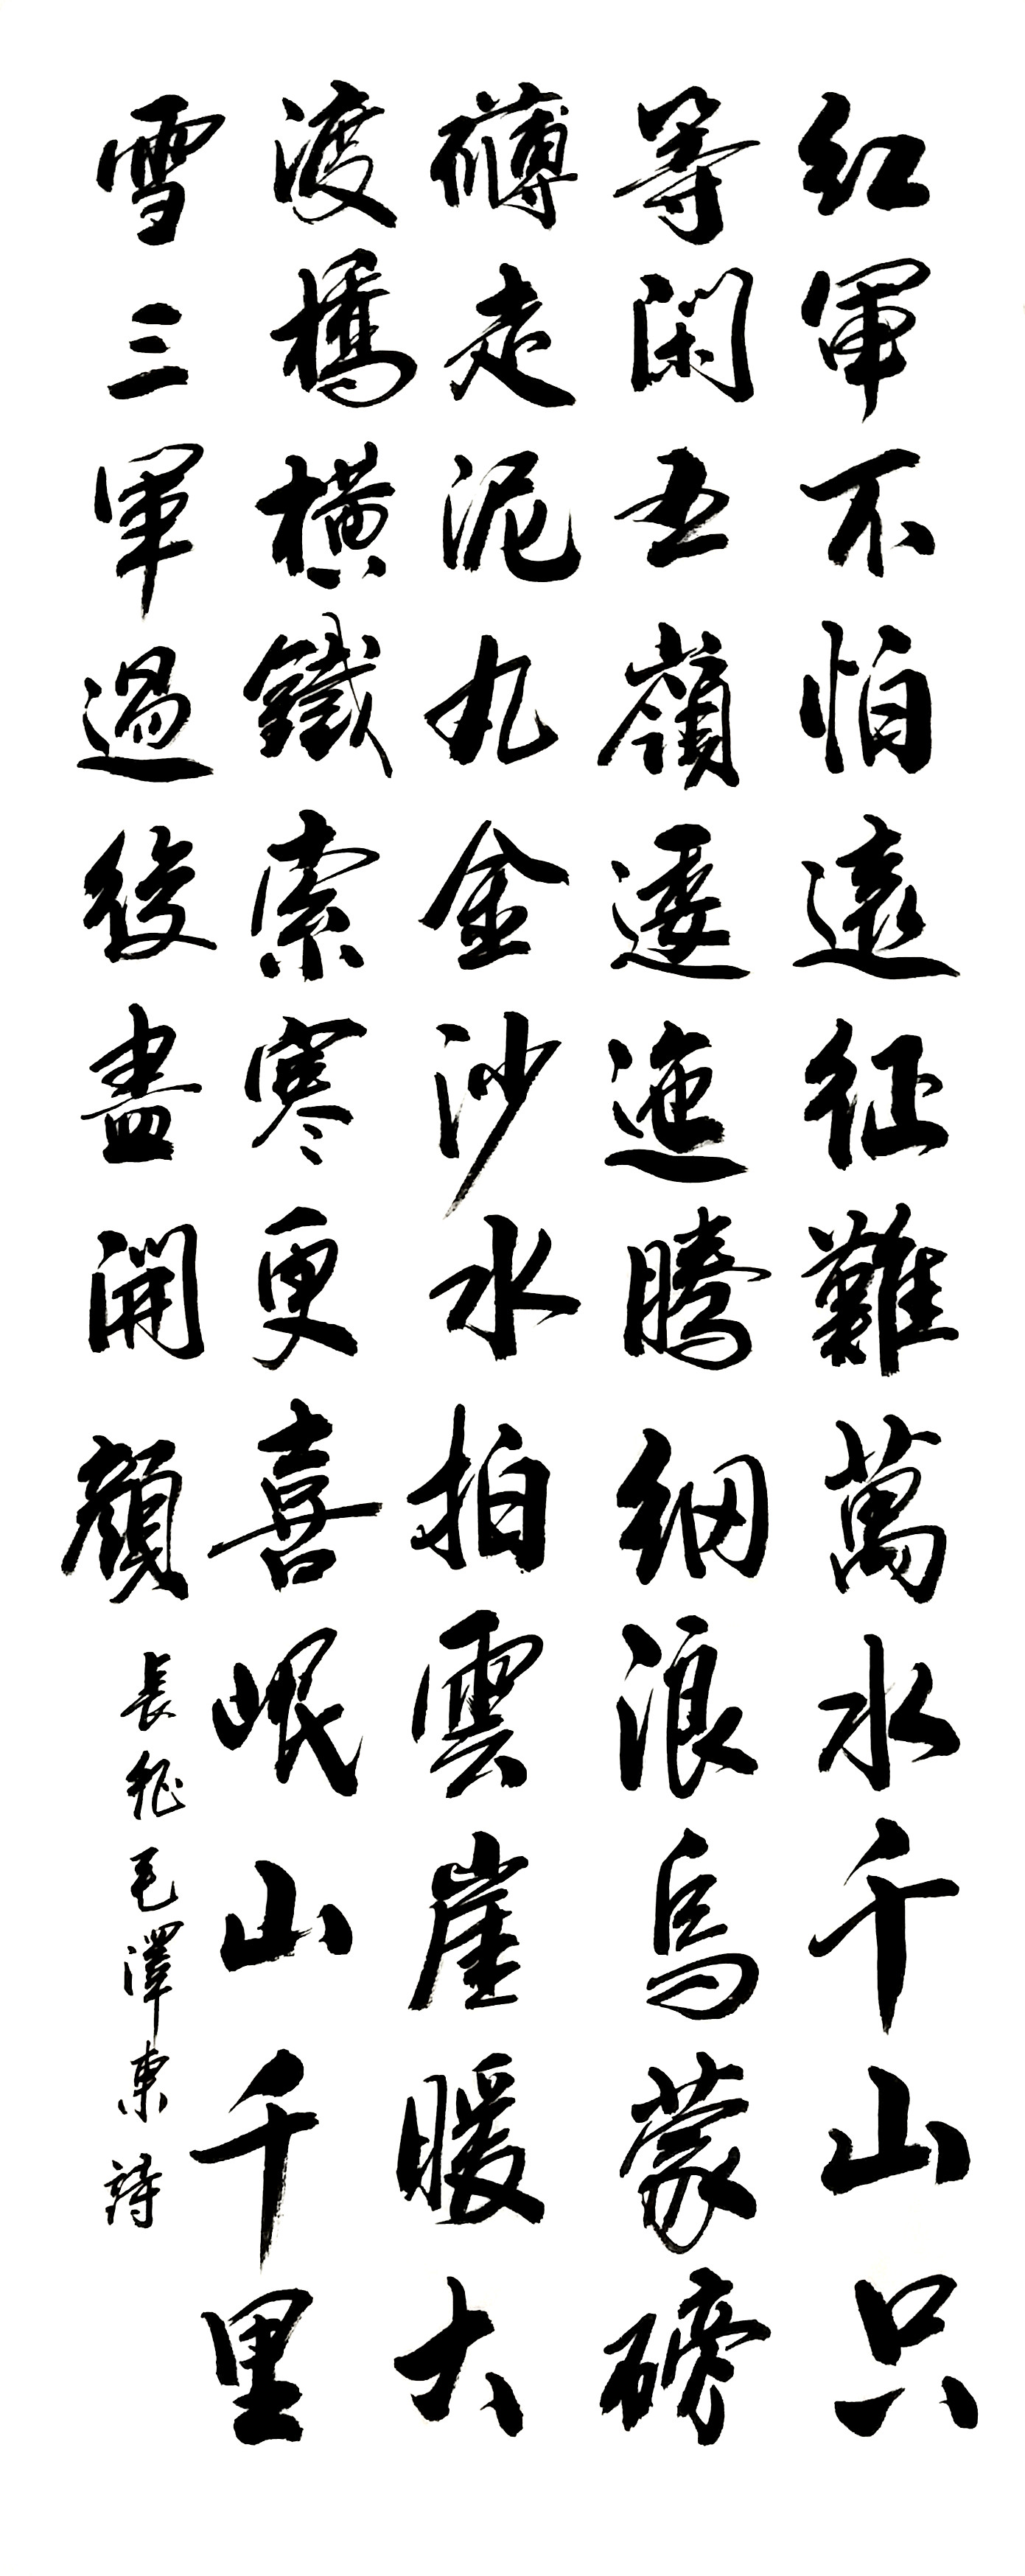 紅軍不怕遠征難萬水千山只
等閑五嶺逶迤騰細浪烏蒙磅
礴走泥丸金沙水拍雲崖暖大
渡橋橫鐵索寒更喜岷山千里
雪三軍過後盡開顏
長征毛澤東詩